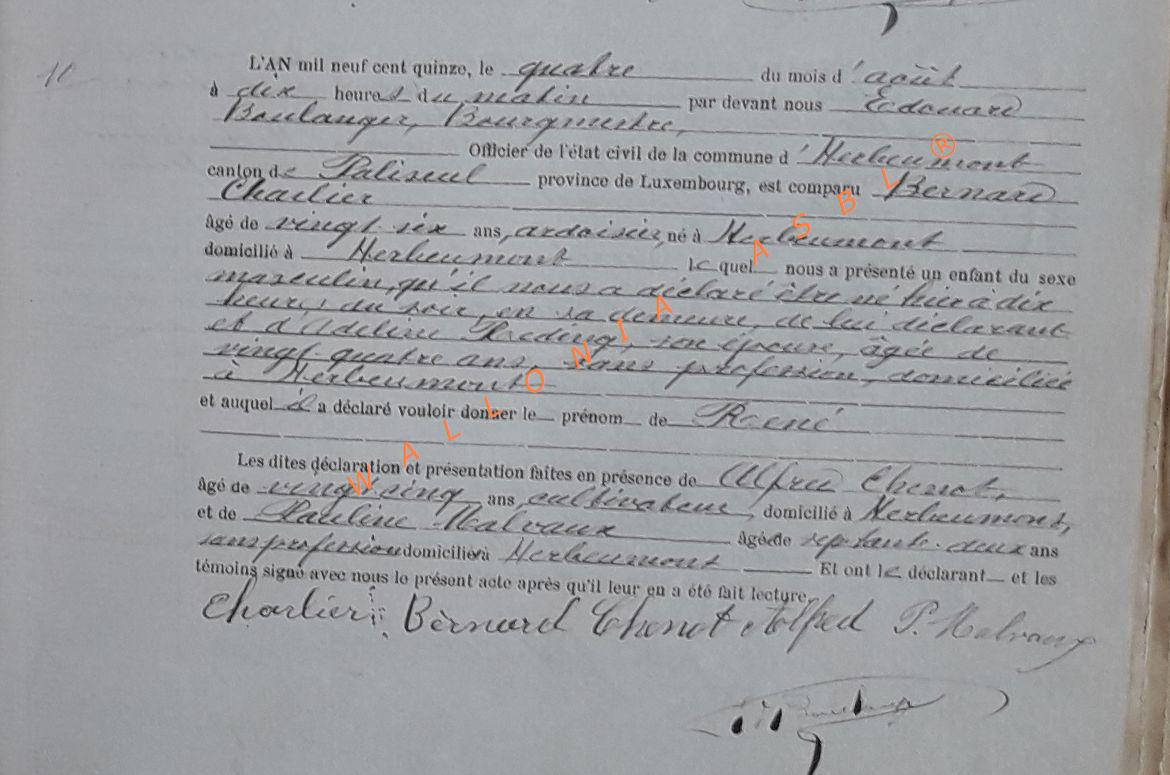 10
L'AN mil neuf cent quinze, le quatre du mois d'août
à dix heures du matin par devant nous Edouard
Boulanger, Bourgmestre,
Officier de l'état civil de la commune d'Herbeumont
canton de Paliseul province de Luxembourg, est comparu Bernard
Charlier
âgé de vingt-six ans, ardoisier, né à Herbeumont
domicilié à Herbeumont lequel nous a présenté un enfant du sexe
masculin, qu'il nous a déclaré être né hier à dix
heures du soir, en sa demeure, de lui déclarant
et d'Adeline Reding, son épouse, âgée de
vingt-quatre ans, sans profession, domiciliée
à Herbeumont
et auquel il a déclaré vouloir donner le prénom de René
Les dites déclaration et présentation faites en présence de Alfred Chenot,
âgé de vingt cinq ans cultivateur, domicilié à Herbeumont,
et de Pauline Malvaux âgée de septante-deux ans
sans profession domiciliée à Herbeumont Et ont le déclarant et les
témoins signé avec nous le présent acte après qu'il leur en a été fait lecture.
Charlier Bernard Chenot Alfred P. Malvaux
WALLONIA ASBL ®